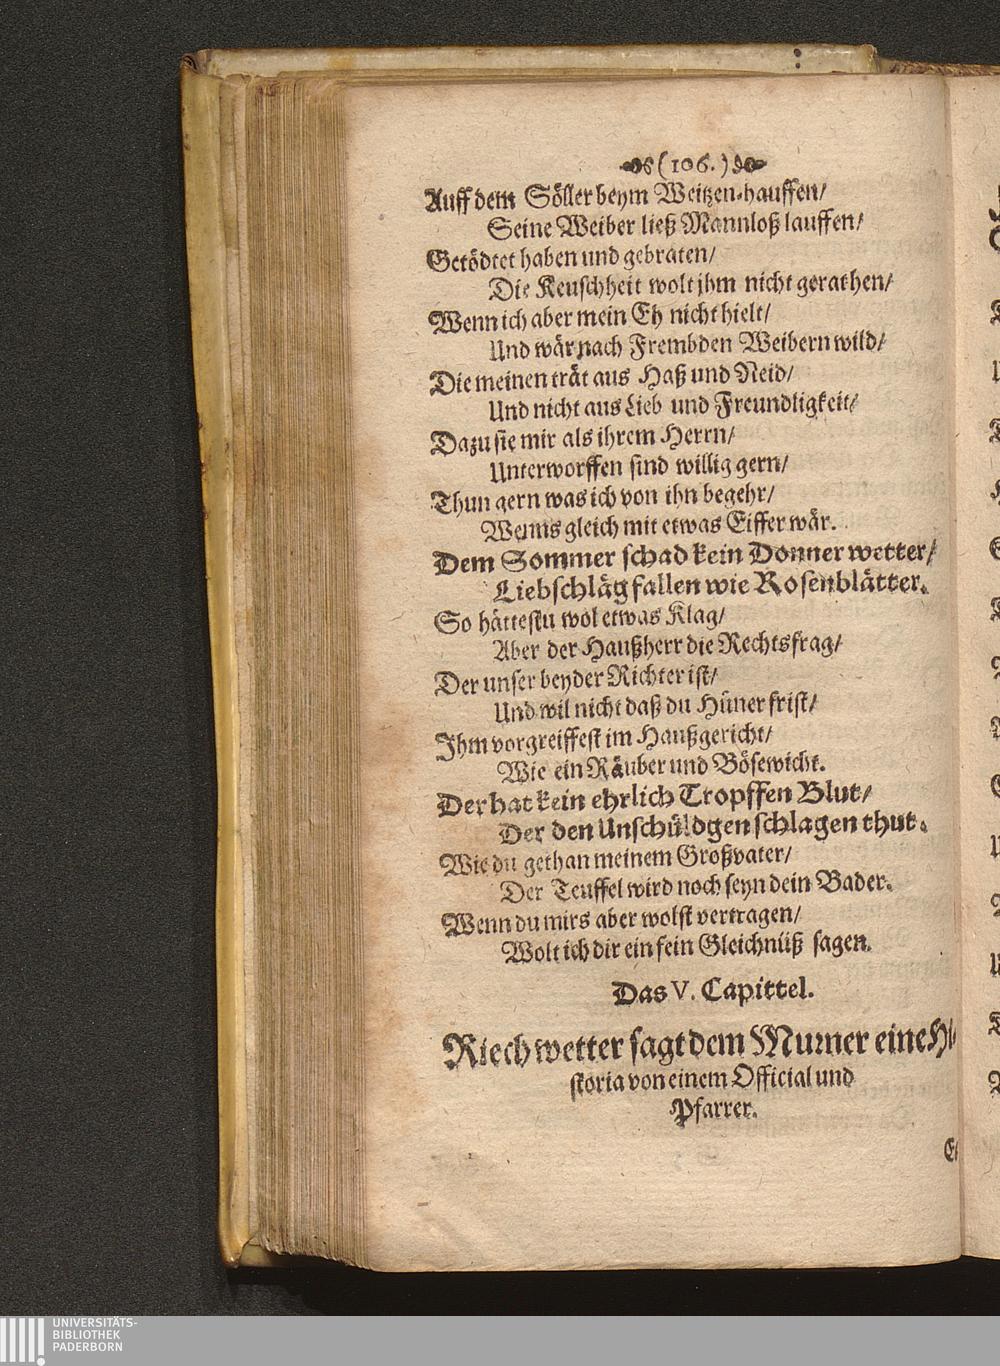 (106.)
Auff dem Söller beym Weitzen-hauffen/
Seine Weiber ließ Mannloß lauffen/
Getödtet haben und gebraten/
Die Keuschheit wolt jhm nicht gerathen/
Wenn ich aber mein Eh nicht hielt/
Und wär nach Frembden Weibern wild/
Die meinen trät aus Haß und Neid/
Und nicht aus Lieb und Freundligkeit/
Dazu sie mir als ihrem Herrn/
Unterworffen sind willig gern/
Thun gern was ich von ihn begehr/
Wenns gleich mit etwas Eiffer wär.
Dem Sommer schad kein Donner wetter/
Liebschläg fallen wie Rosenblätter.
So hättestu wol etwas Klag/
Aber der Haußherr die Rechtsfrag/
Der unser beyder Richter ist/
Und wil nicht daß du Hüner frist/
Ihm vorgreiffest im Haußgericht/
Wie ein Räuber und Bösewicht.
Der hat kein ehrlich Tropffen Blut/
Der den Unschüldgen schlagen thut.
Wie du gethan meinem Großvater/
Der Teuffel wird noch seyn dein Bader.
Wenn du mirs aber wolst vertragen/
Wolt ich dir ein fein Gleichnüß sagen.
Das V. Capittel.
Riechwetter sagt dem Murner eine Hi-
storia von einem Official und
Pfarrer.
UNIVERSITÄTS-
BIBLIOTHEK
PADERBORN